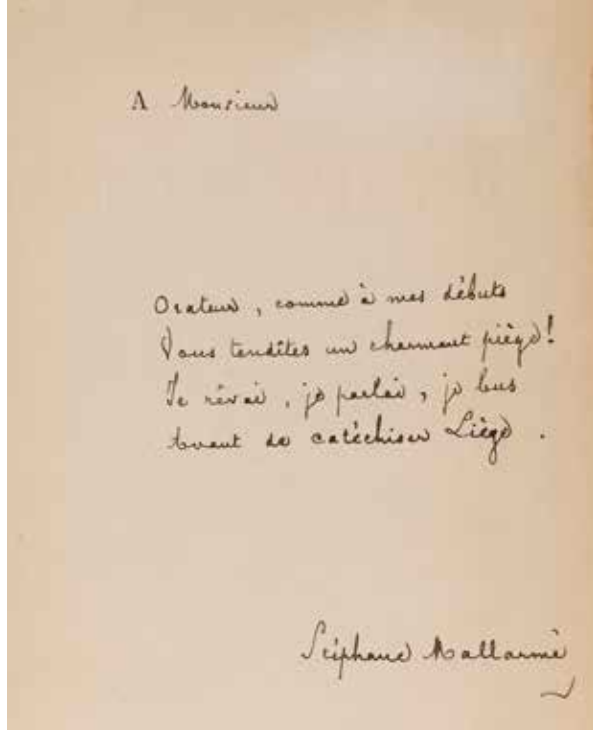 A Monsieur
Orateur, comme à mes débuts
Vous tendîtes un charmant piège!
Je rêvai, je parlai, je bus
Avant de catéchiser Liège.
Stéphane Mallarmé